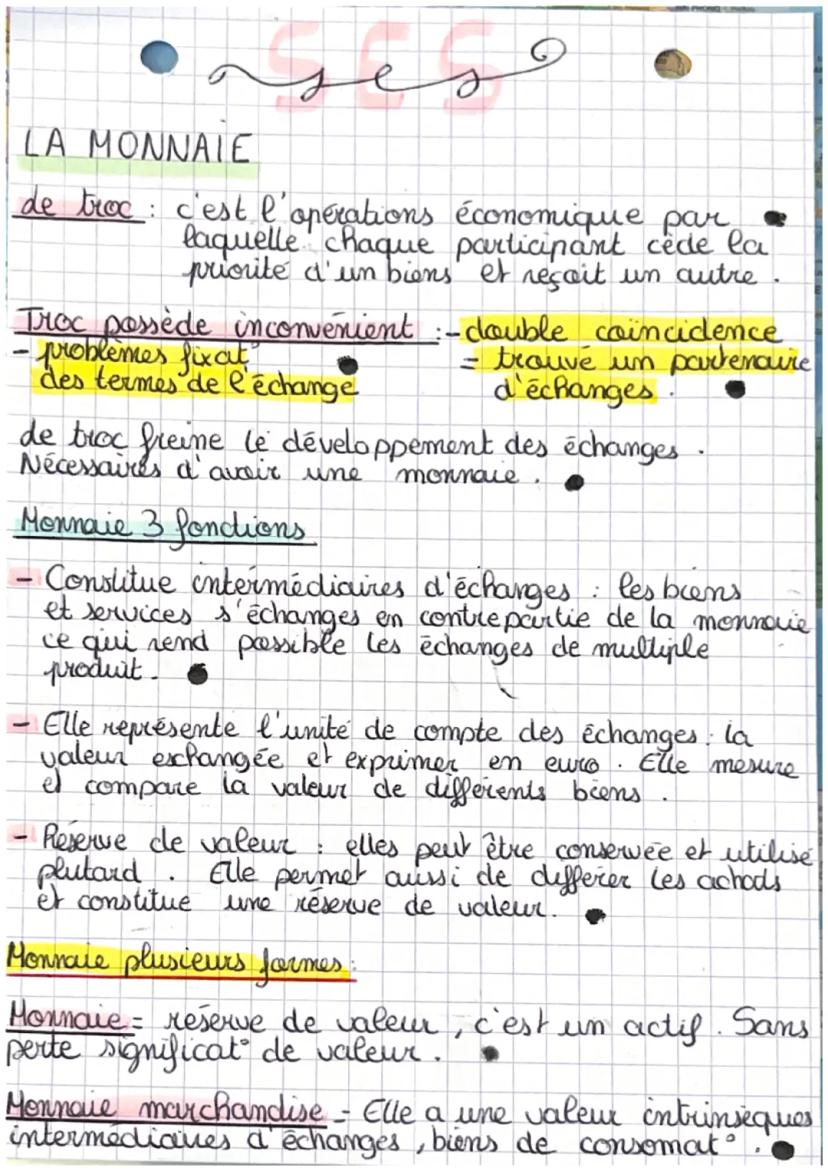 SES
ses
LA MONNAIE
de troc : c'est l'opérations économique par
laquelle chaque participant cède la
priorité d'un biens et reçoit un autre .
Troc possède inconvénient : - double coïncidence
- problèmes fixat° = trouvé un partenaire
des termes de l'échange d'échanges .
de troc freine le développement des échanges .
Nécessaires d'avoir une monnaie .
Monnaie 3 fonctions
- Constitue intermédiaires d'échanges : les biens
et services s'échanges en contrepartie de la monnaie
ce qui rend possible les échanges de multiple
produit .
- Elle représente l'unité de compte des échanges : la
valeur exchangée et exprimer en euro . Elle mesure
et compare la valeur de différents biens .
- Réserve de valeur : elles peut être conservée et utilisé
plutard . Elle permet aussi de différer les achads
et constitue une réserve de valeur .
Monnaie plusieurs formes :
Monnaie = réserve de valeur , c'est un actif . Sans
perte significat° de valeur .
Monnaie marchandise - Elle a une valeur intrinsèques
intermédiaires d'échanges , biens de consomat° .